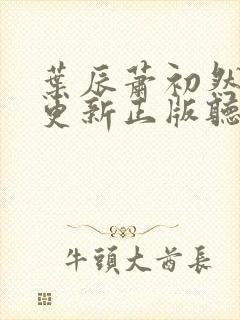 葉辰蕭初然
更新正版聽
牛頭大酋長